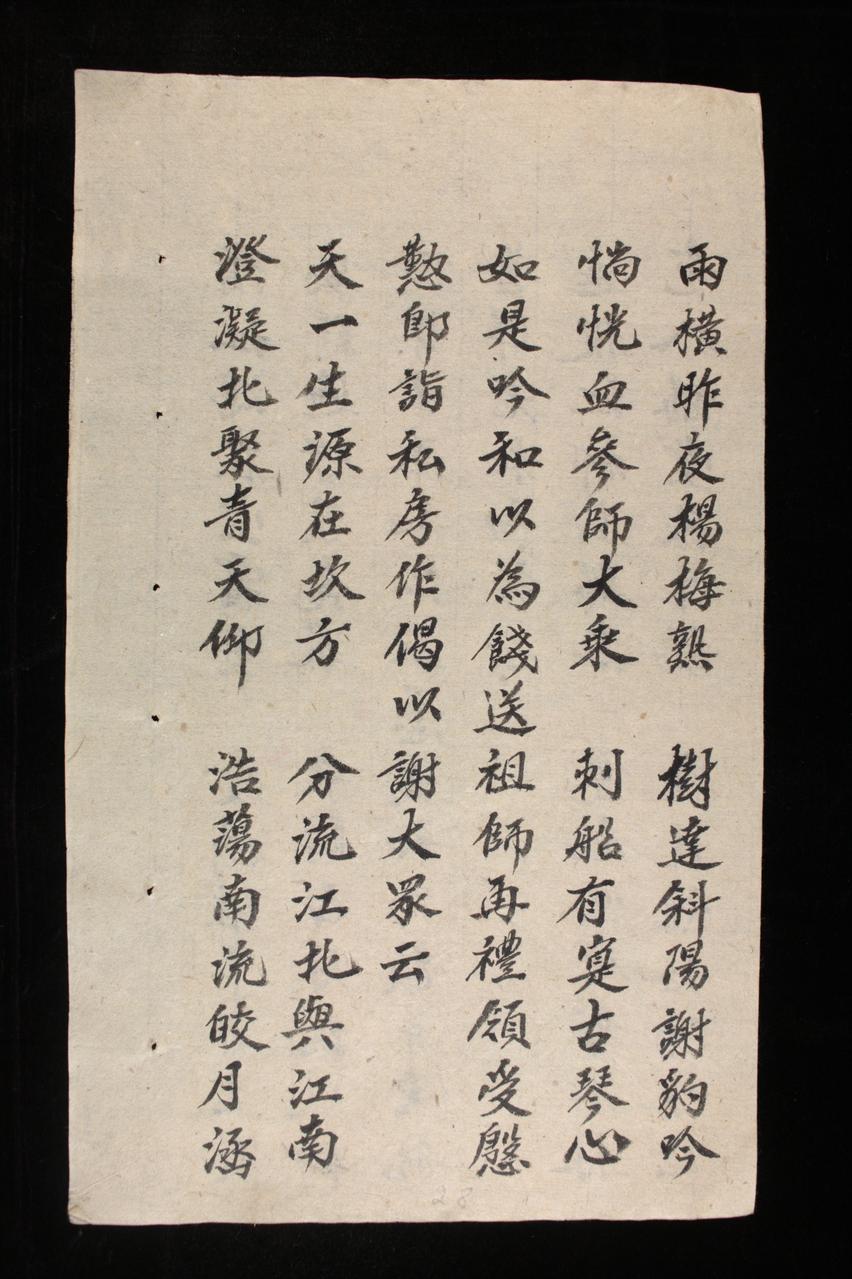 雨橫昨夜楊梅熟 樹達斜陽謝豹吟
惝恍血參師大乘 刺船有寞古琴心
如是吟和以為餞送祖師再禮領受慇
懃即詣私房作偈以謝大眾云
天一生源在坎方 分流江北與江南
澄凝北聚青天仰 浩蕩南流皎月涵
28